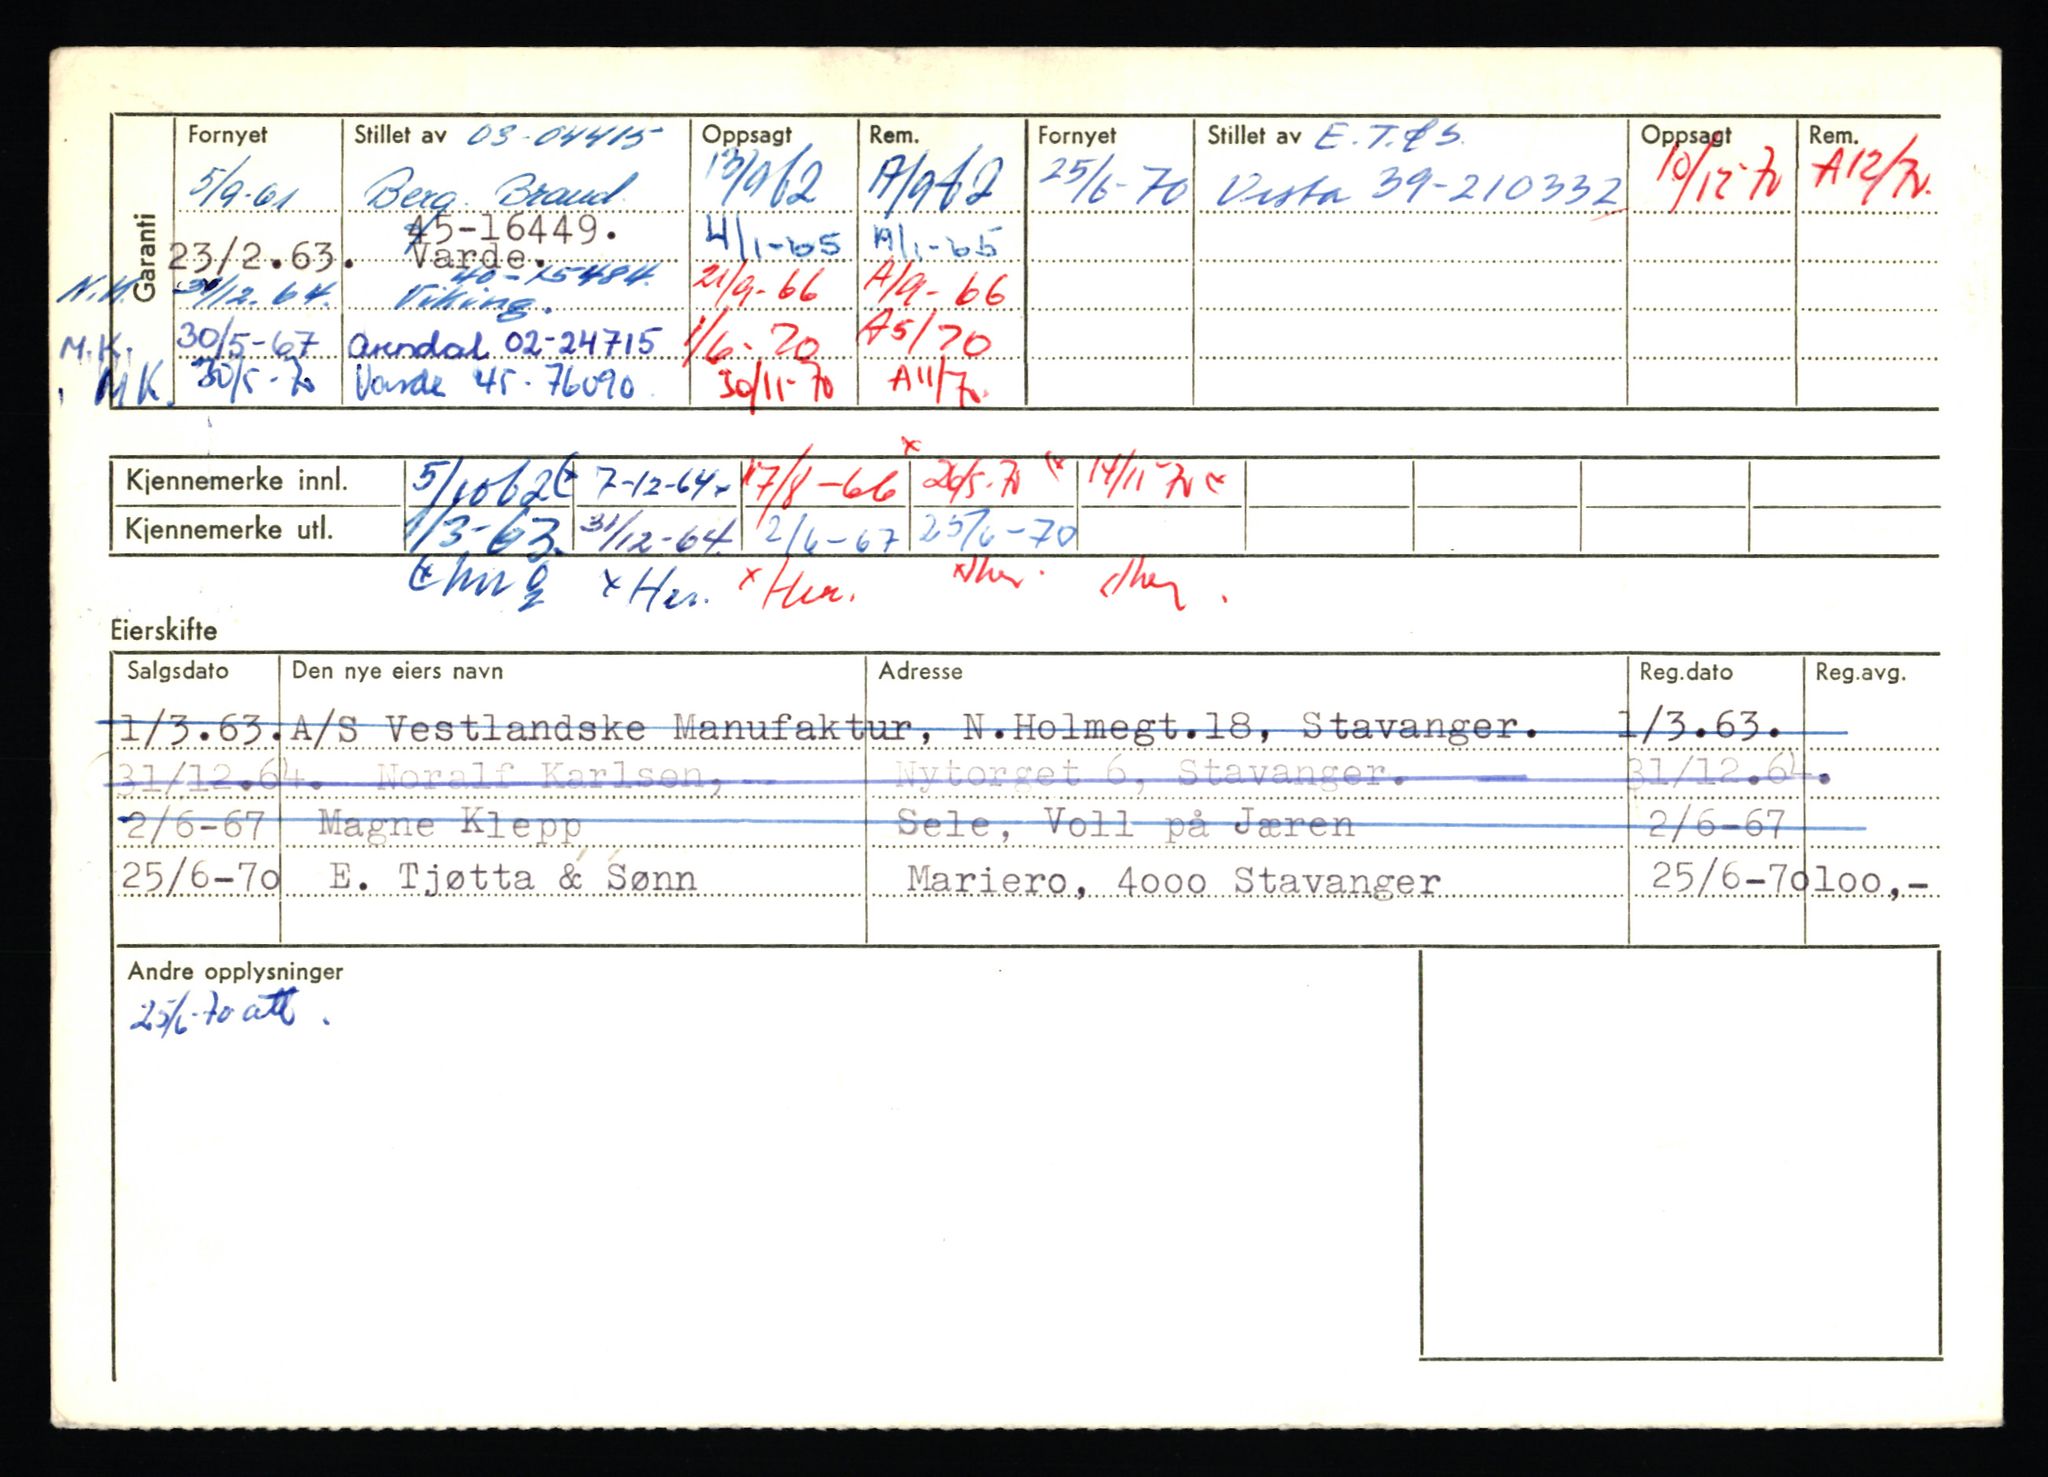 Garanti
Fornyet Stillet av 03-04415 Oppsagt Rem. Fornyet Stillet av E.T.&S. Oppsagt Rem.
5/9-61 Berg. Brand 13/9 62 A/9 62 25/6-70 Vesta 39-210332 10/12-70 A12/70.
45-16449.
23/2.63. Varde. 4/1-65 A/1-65
40-15484.
N.K. 31/12.64. Viking. 21/9-66 A/9-66
M.K. 30/5-67 Arendal 02-24715 1/6-70 A5/70
MK. 30/5-70 Varde 45-76090 30/11-70 A11/70.
Kjennemerke innl. 5/10 62 (x 7-12-64 x 17/8-66 x 26/5-70 (x 14/11-70 x
Kjennemerke utl. 1/3-63. 31/12-64. 2/6-67 25/6-70
x Her. x Her.
Eierskifte
Salgsdato Den nye eiers navn Adresse Reg.dato Reg.avg.
1/3.63. A/S Vestlandske Manufaktur, N.Holmegt.18, Stavanger. 1/3.63.
31/12.64. Noralf Karlsen, Nytorget 6, Stavanger. 31/12.64.
2/6-67 Magne Klepp Sele, Voll på Jæren 2/6-67
25/6-70 E. Tjøtta & Sønn Mariero, 4000 Stavanger 25/6-70 100,-
Andre opplysninger
25/6-70 att.